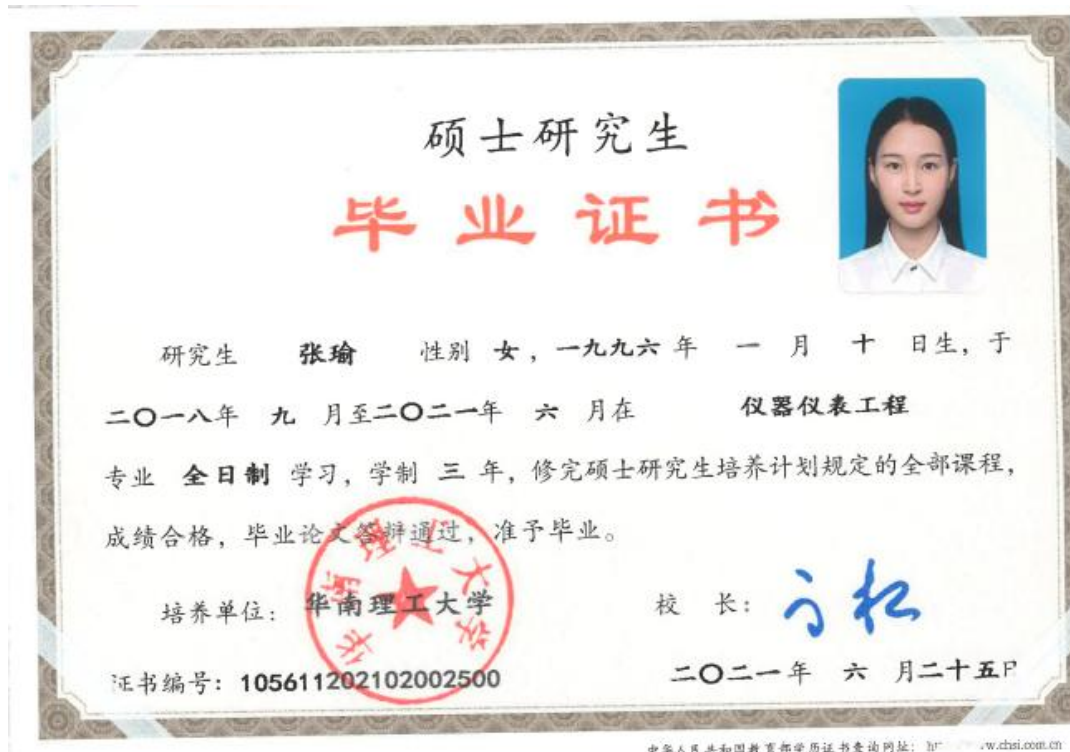 硕士研究生
毕业证书
研究生 张瑜 性别 女，一九九六 年 一 月 十 日生，于
二〇一八年 九 月至二〇二一年 六 月在 仪器仪表工程
专业 全日制 学习，学制 三 年，修完硕士研究生培养计划规定的全部课程，
成绩合格，毕业论文答辩通过，准予毕业。
培养单位：华南理工大学 校 长：
华南理工大学
证书编号：105611202102002500 二〇二一年 六 月二十五日
中华人民共和国教育部学历证书查询网址： w.chsi.com.cn